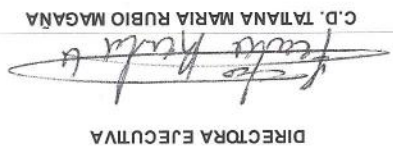 DIRECTORA EJECUTIVA
C.D. TATIANA MARIA RUBIO MAGAÑA